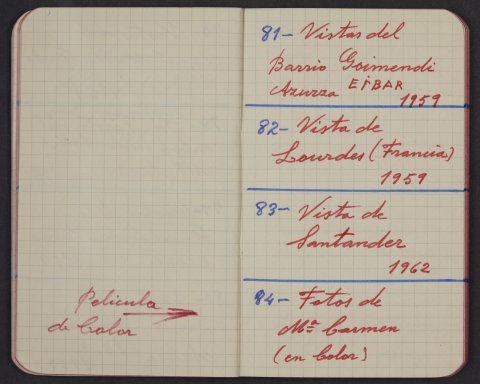 Pelicula
de Color
81- Vistas del
Barrio Goimendi
Azurza EiBAR
1959
82- Vista de
Lourdes (Francia)
1959
83- Vista de
Santander
1962
84- Fotos de
Mª Carmen
(en Color)